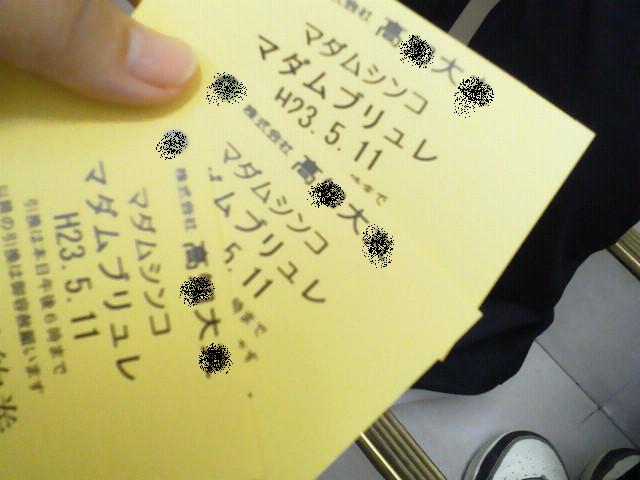 株式会社 高 大
マダムシンコ
マダムブリュレ
H23.5.11
株式会社 高 大
マダムシンコ
ムブリュレ
5.11
時まで
株式会社 高 大
マダムシンコ
マダムブリュレ
H23.5.11
引換は本日午後6時まで
以降の引換は御容赦願います